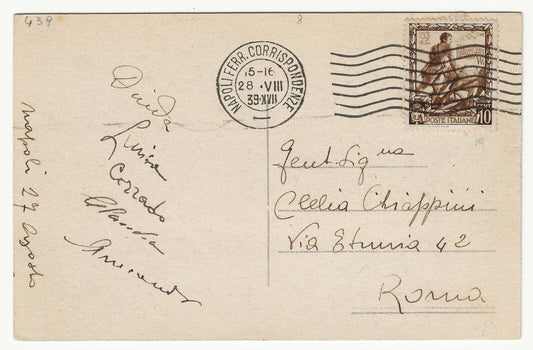 439
8
NAPOLI FERR. CORRISPONDENZE
15-16
28 · VIII
39·XVII
POSTE ITALIANE
10
Luisa
Corrado
Claudia
Armando
Napoli 27 Agosto
Gent. Sig.na
Clelia Chiappini
Via Etruria 42
Roma
10